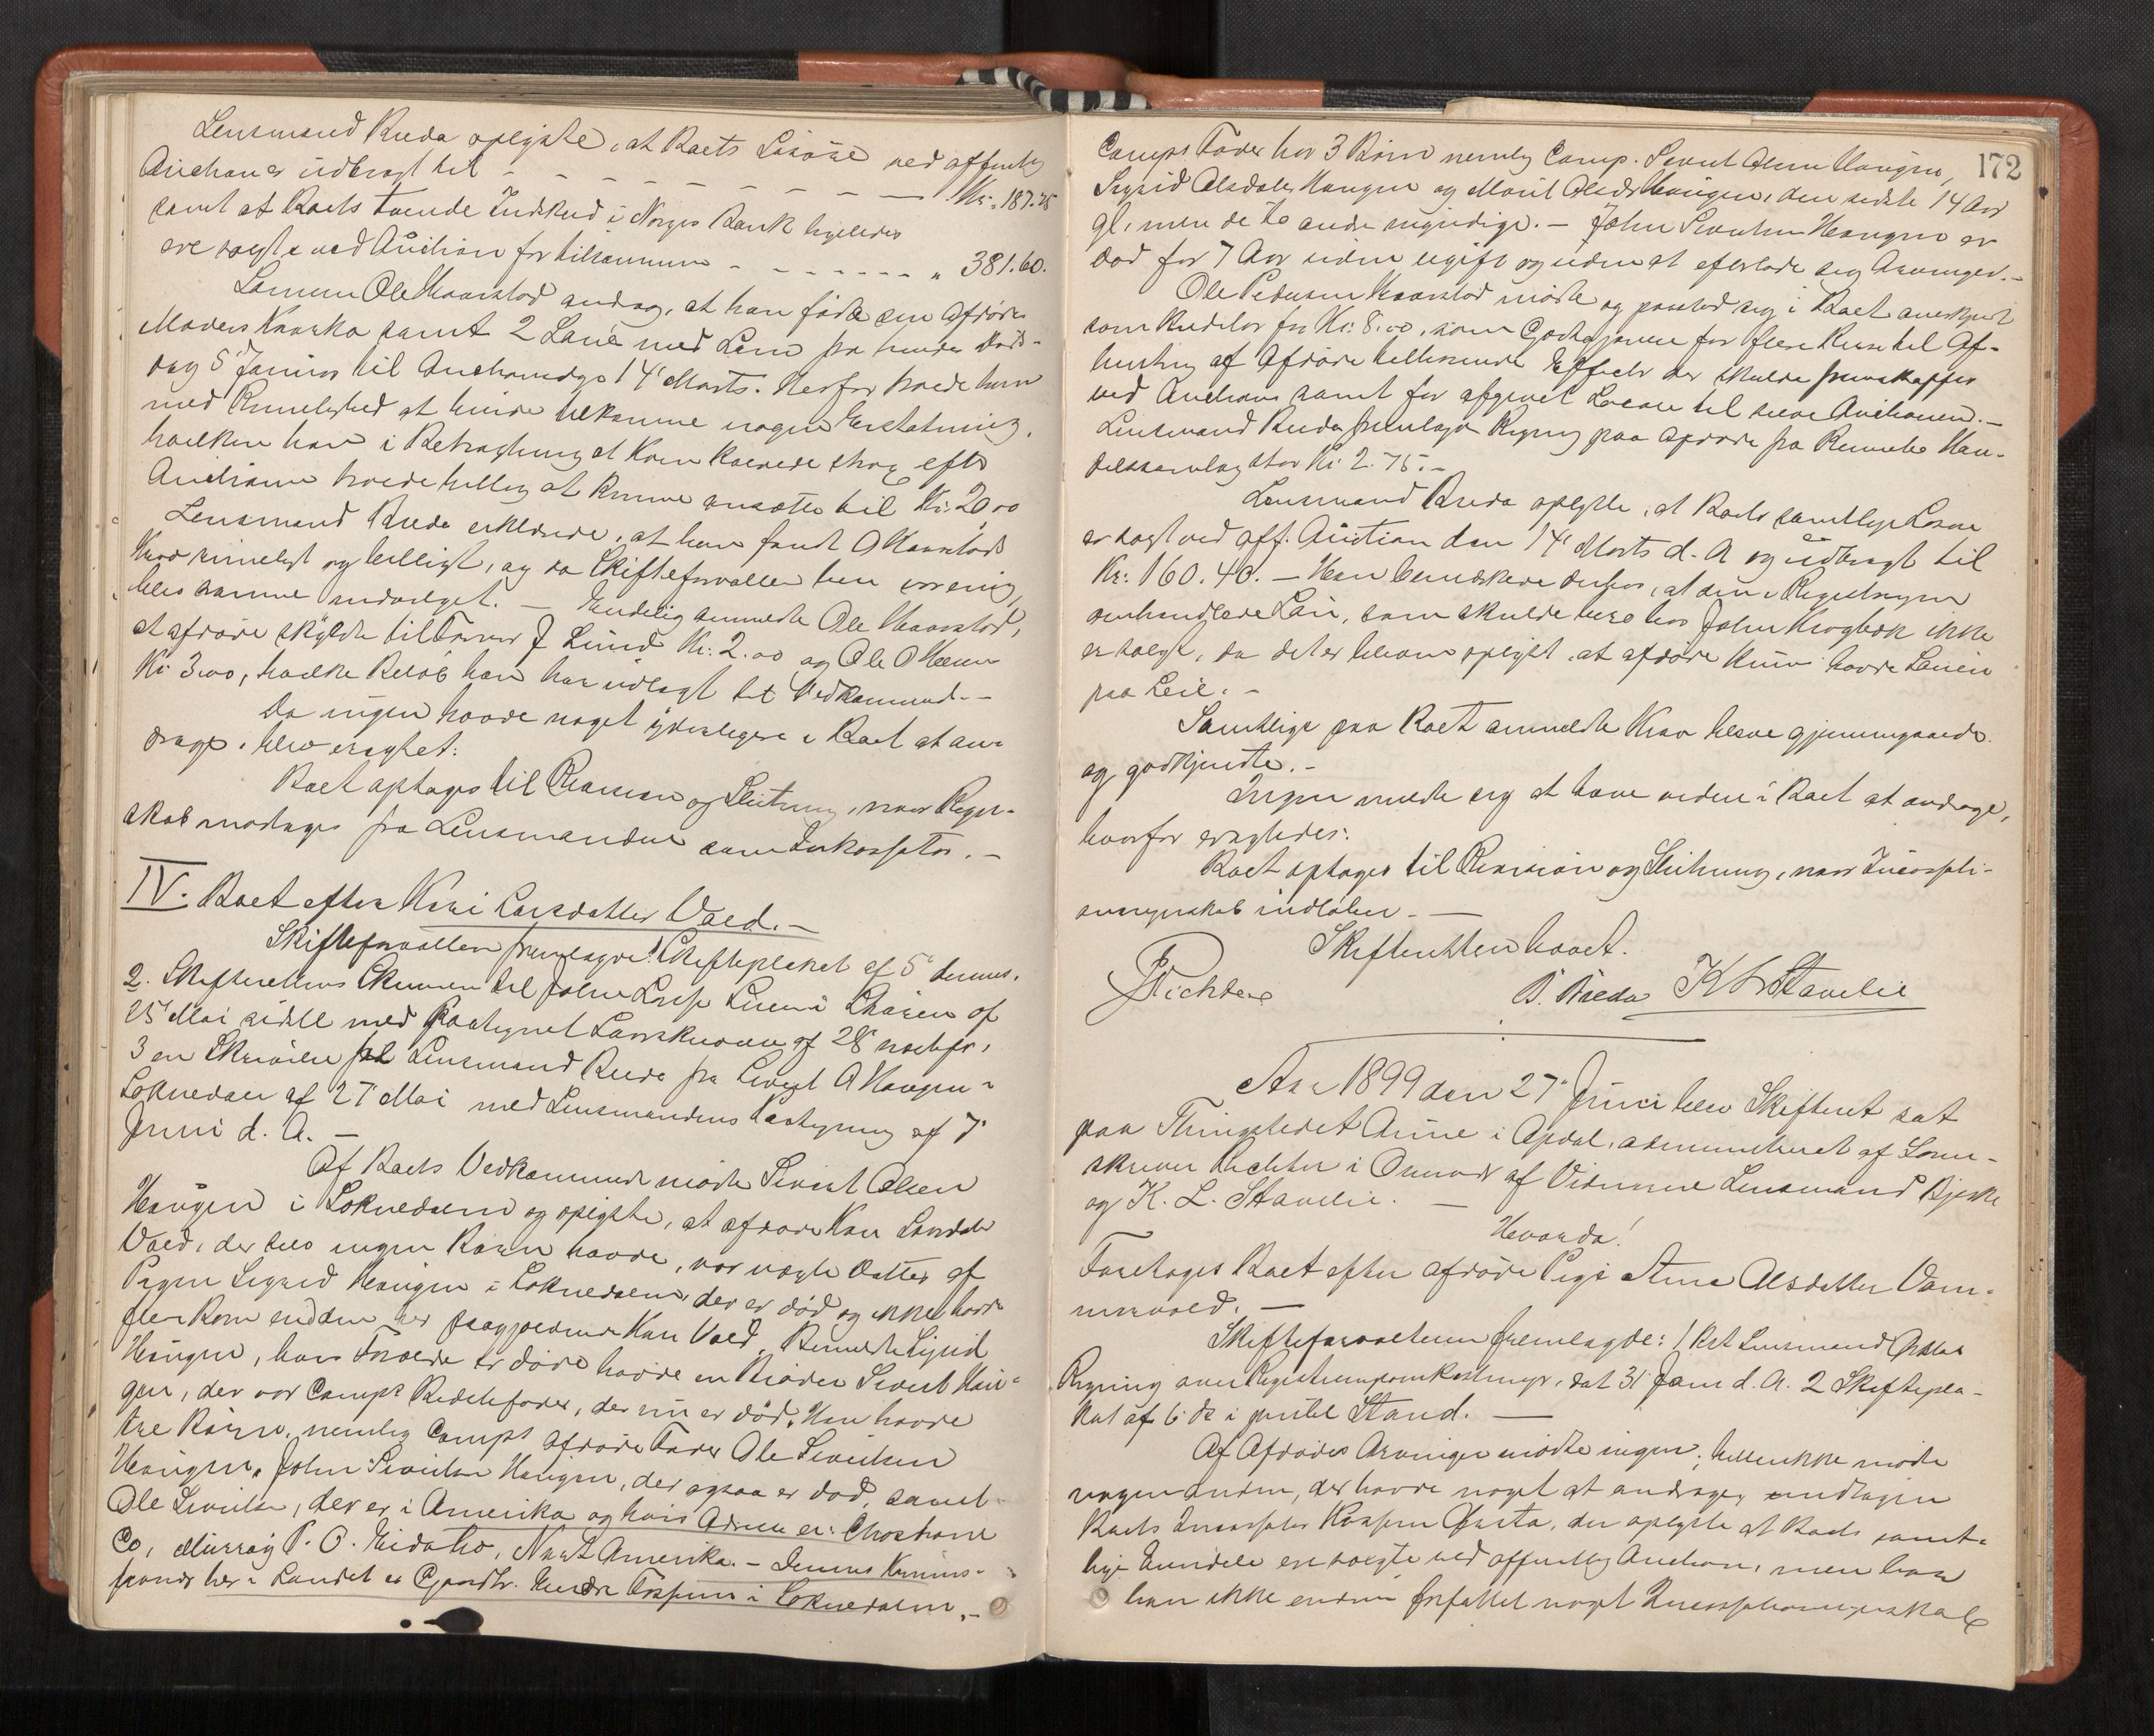 Lensmand Bueda oplyste, at Boets Løsøre ved offentlig
Auction er udbragt til - - - - - - - - Kr. 187.75
samt at Boets tvende Indskud i Norges Bank ligeledes
ere solgte ved Auction for tilsammen - - - - - - - " 381.60.
Sønnen Ole Haarstad androg, at han fødte sin afdøde
Moders Kvarka samt 2 Lam fra hendes Døds-
dag 5' Januar til Auctionsdgn 14' Marts. Herfor troede han
med Rimelighed at burde tilkomme nogen Erstatning,
hvilken han i Betragtning at Koen kalvede strax efter
Auctionen troede billig at kunne ansætte til Kr. 20,00
Lensmand Bueda erklærede, at han fandt O Haarstads
Krav rimeligt og billigt, og da Skifteforvalteren var enig,
blev samme indvilget. — Endelig anmeldte Ole Haarstad,
at afdøde skyldte til J Lund Kr. 2.00 og Ole O
Kr 3.00, hvilke Beløb han har udlagt til Vedkommende. -
Da ingen havde noget yderligere i Boet at an-
drage, blev eragtet:
Boet optages til Revision og Slutning, naar Regn-
skab modtages fra Lensmanden som Inkassator. -
IV. Boet efter Kari Larsdatter Vold. -
Skifteforvalteren fremlagde: 1 Skifteplakat af 5' dennes.
2. Skifterettens Skrivelse til John af
25' Mai sidstl. med paategnet Lovskrivelse af 28' næstefter,
3 en Skrivelse til Lensmand Bueda fra Sivert O Haugen -
Soknedalen af 27' Mai med Lensmandens Paategning af 7'
Juni d. A. -
Af Boets Vedkommende mødte Sivert Olsen
Haugen i Soknedalen og oplyste, at afdøde Kari Larsdatter
Vold, der selv ingen Børn havde, var uægte Datter af
Pigen Sigrid Haugen i Soknedalen, der er død og ikke havde
flere Børn enddere her paagjældende Kari Vold. Bemeldte Sigrid
Haugen, hvis Forældre er døde havde en Broder Sivert Hau-
gen, der var Comps Bedstefader, der nu er død. Han havde
tre Børn, nemlig Comps afdøde Fader Ole Sivertsen
Haugen, John Sivertsen Haugen, der ogsaa er død, samt
Ole Sivertsen, der er i Amerika og hvis Adresse er: Choshone
Co, Murray P. O. Eidaho, Nord Amerika. - Dennes Kommis-
sionær her i Landet er Gaardbr. Endre i Soknedalen. -
172
Comps Fader har 3 Børn nemlig Comp. Sivert Olsen Haugen,
Sigrid Olsdatter Haugen og Marit Olsdtr Haugen, den sidste 14 Aar
gl, men de to andre myndige. - John Sivertsen Haugen er
død for 7 Aar siden ugift og uden at efterlade sig Arvinger. -
Ole Pedersen Haarstad mødte og paastod sig i Boet anerkjendt
som Kreditor for Kr. 8.00, som Godtgjørelse for flere Reiser til Af-
hentning af Afdøde tilhørende Effecter der skulde fremskaffes
ved Auction samt for afgivet Locale til selve Auctionen. -
Lensmand Bueda fremlagde Regning paa Afdøde fra Rennebu Han-
delssamlag stor Kr. 2.75. -
Lensmand Bueda oplyste, at Boets samtlige Løsøre
er solgt ved off. Auction den 14' Marts d. A og udbragt til
Kr: 160.40. - Han bemærkede derhos, at den i Registreringen
omhandlede Lam, som skulde være hos John Krogbæk ikke
er solgt, da det er bleven oplyst, at afdøde kun havde Lammen
paa Leie. -
Samtlige paa Boet anmeldte Krav bleve gjennemgaaede
og godkjendte. -
Ingen meldte sig at have videre i Boet at andrage,
hvorfor eragtedes:
Boet optages til Revision og Slutning, naar Incassati-
onsregnskab indløber. —
Skifteretten hævet.
Richter
B. Bueda K L Stavelie
Aar 1899 den 27' Juni blev Skifteret sat
paa Thingstedet Aune i Opdal, administreret af Soren-
skriver Richter i Overvær af Vidnerne Lensmand Bjerke
og K. L. Stavelie. —
Hvorda!
Foretoges Boet efter afdøde Pige Anne Olsdatter Vam-
mervold. —
Skifteforvalteren fremlagde: 1 Lensmand
Regning over Registreringsomkostninger, dat 31' Jan d. A. 2 Skiftepla-
kat af 6' ds i Stand. —
Af Afdødes Arvinger mødte ingen, heller ikke mødte
nogen anden, der havde noget at andrage, undtagen
Boets Incassator der oplyste at Boets samt-
lige Eiendele ere solgte ved offentlig Auction, men har
han ikke endnu forfattet noget Incassationsregnskab